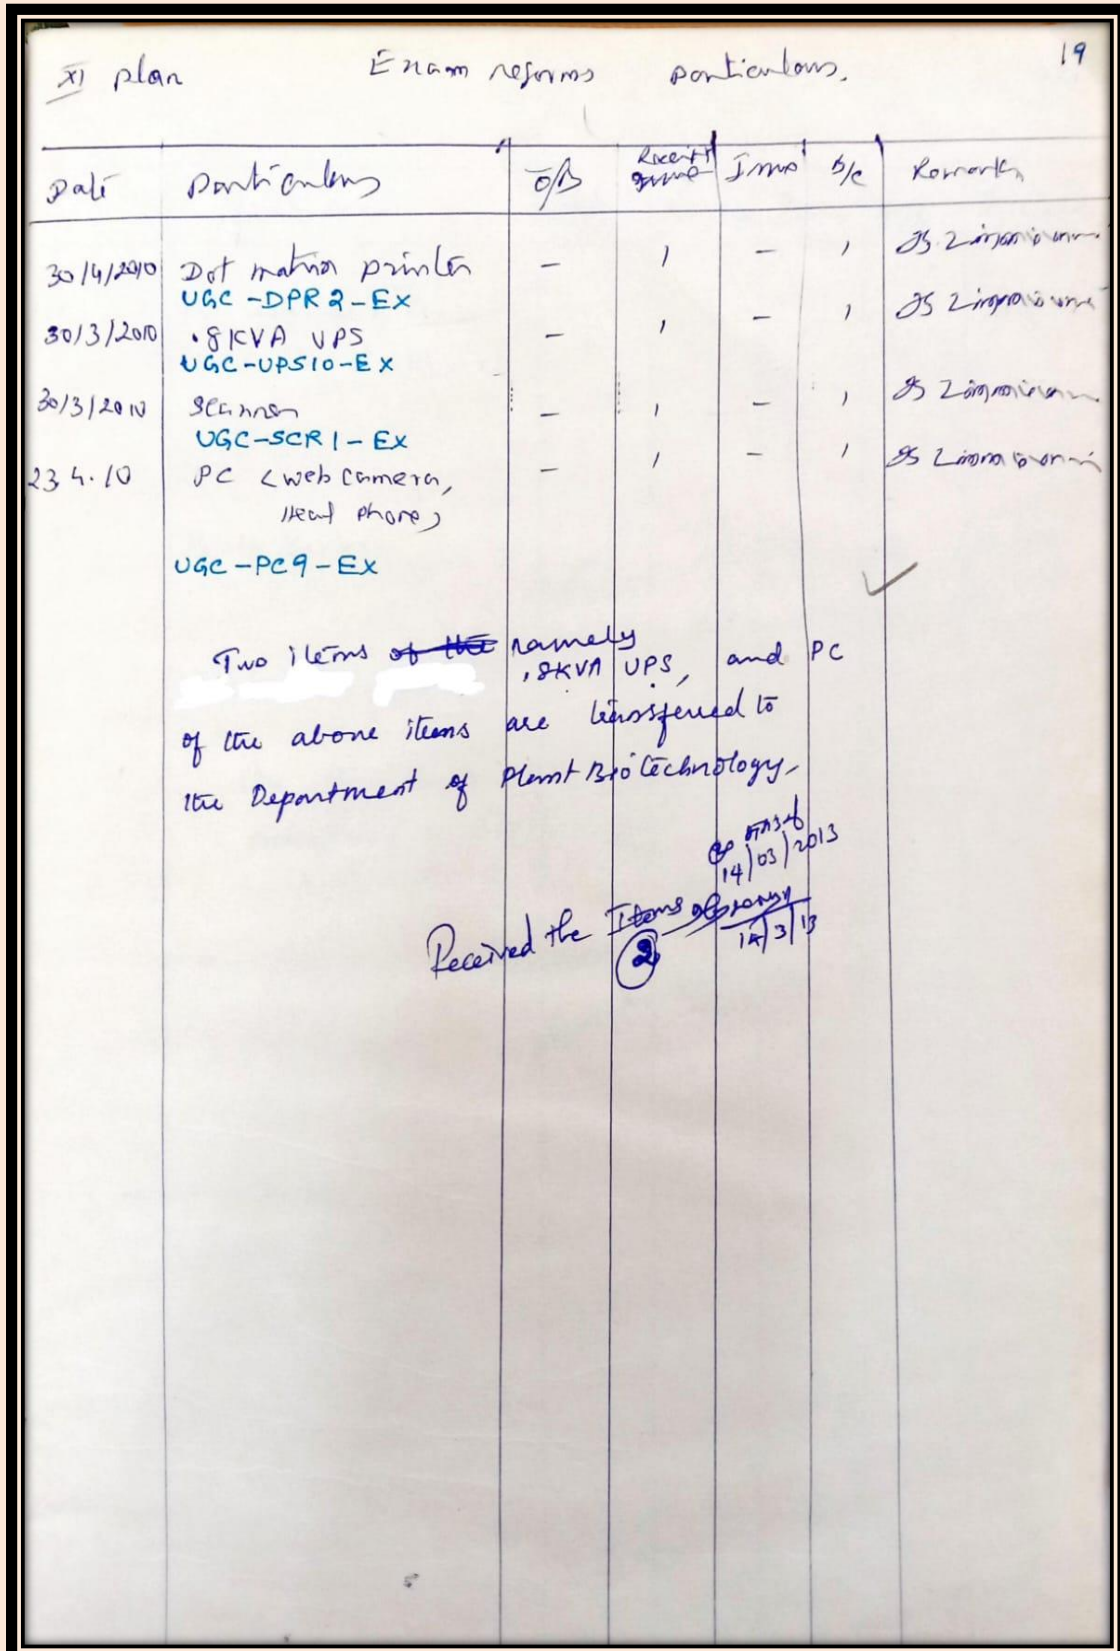 19
XI plan Exam reforms particulars.
Date Particulars O/B Receipt Issue B/C Remarks
30/4/2010 Dot matrix printer – 1 – 1
UGC-DPR2-EX
30/3/2010 .8KVA UPS – 1 – 1
UGC-UPS10-EX
30/3/2010 Scanner – 1 – 1
UGC-SCR1-EX
23.4.10 PC <web camera, – 1 – 1
Head phone>
UGC-PC9-EX
Two items of the namely
.8KVA UPS, and PC
of the above items are transferred to
the Department of Plant Biotechnology.
14/03/2013
Received the Items
2
14/3/13